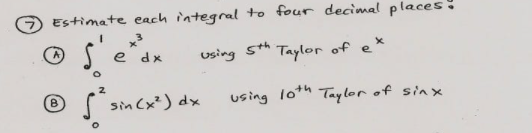 ⑦ Estimate each integral to four decimal places:
Ⓐ ∫₀¹ e^(x³) dx using 5th Taylor of eˣ
Ⓑ ∫₀² sin(x²) dx using 10th Taylor of sin x